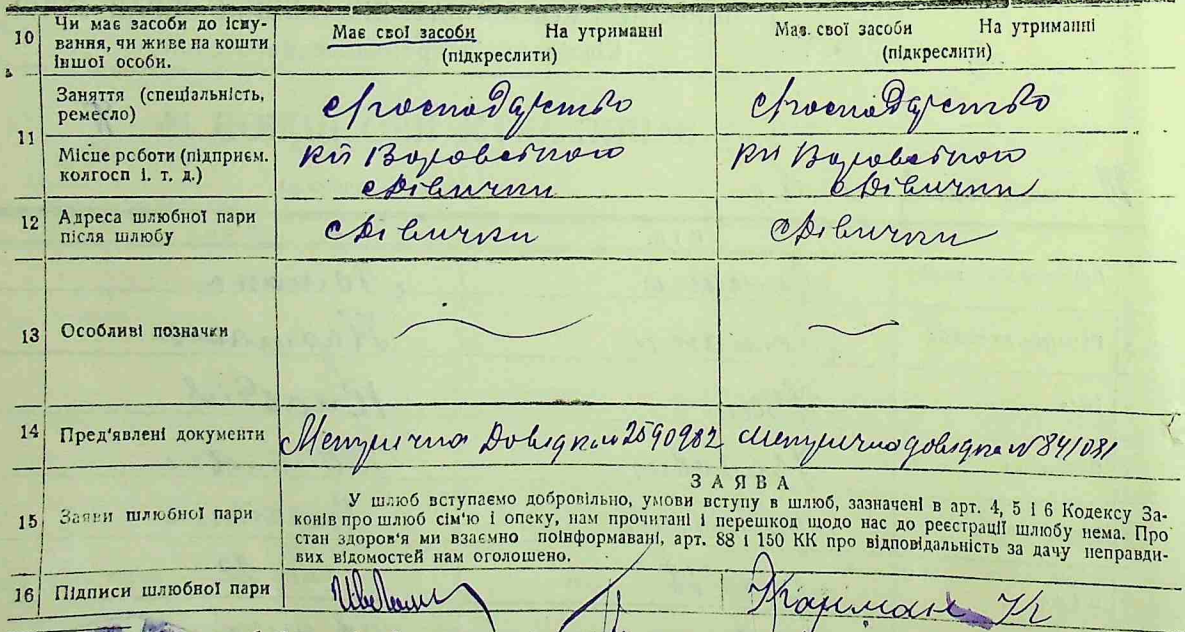 10 Чи має засоби до існу-
вання, чи живе на кошти
іншої особи.
Має свої засоби На утриманні
(підкреслити)
Має свої засоби На утриманні
(підкреслити)
11
Заняття (спеціальність,
ремесло)
господарство
господарство
Місце роботи (підприєм.
колгосп і. т. д.)
Дівички
Дівички
12 Адреса шлюбної пари
після шлюбу
Дівички
Дівички
13 Особливі позначки
14 Пред'явлені документи
Метрична Довідка № 2590982
метрична довідка № 841081
15 Заяви шлюбної пари
ЗАЯВА
У шлюб вступаємо добровільно, умови вступу в шлюб, зазначені в арт. 4, 5 і 6 Кодексу За-
конів про шлюб сім'ю і опеку, нам прочитані і перешкод щодо нас до реєстрації шлюбу нема. Про
стан здоров'я ми взаємно поінформавані, арт. 88 і 150 КК про відповідальність за дачу неправди-
вих відомостей нам оголошено.
16 Підписи шлюбної пари